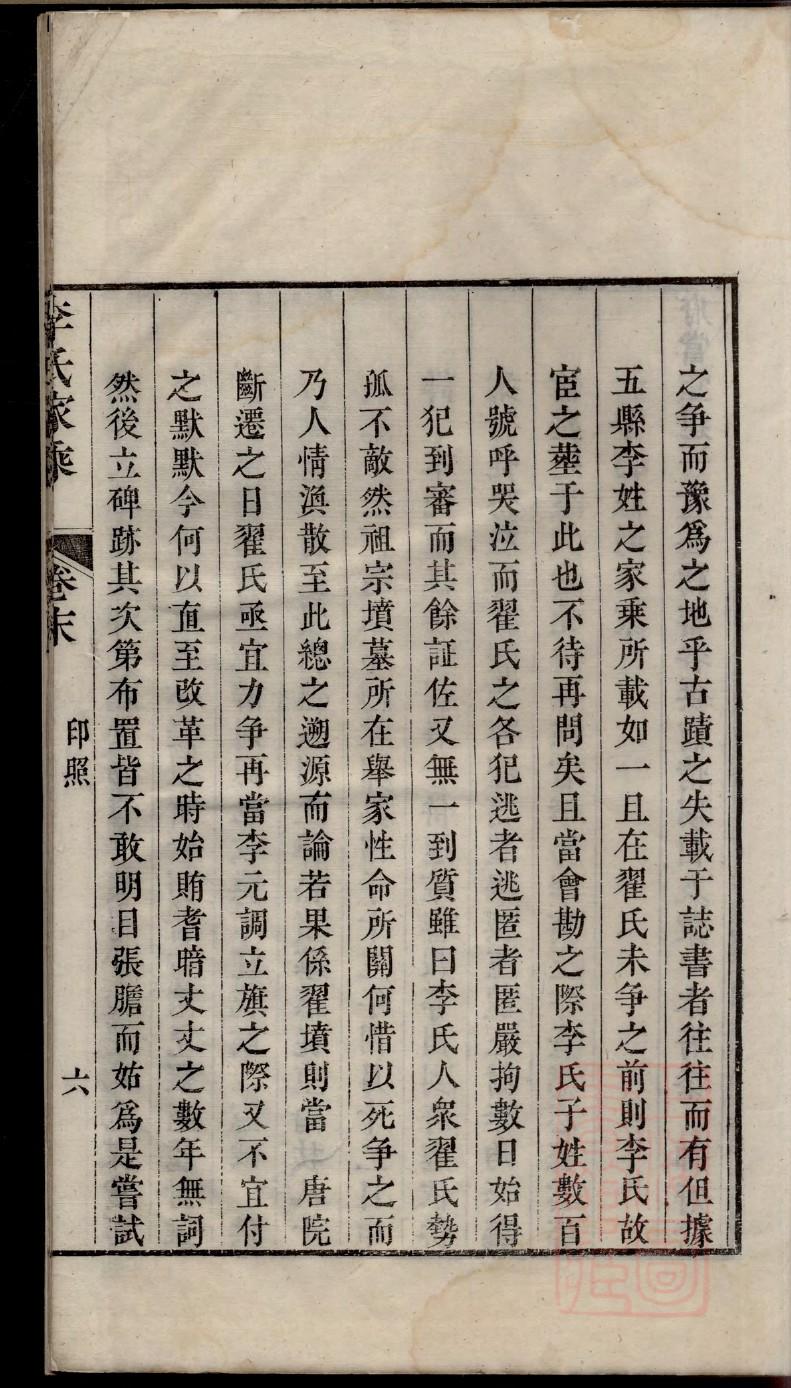 之争而豫爲之地乎古蹟之失載于誌書者往往而有但據
五縣李姓之家乘所載如一且在翟氏未争之前則李氏故
宦之塟于此也不待再問矣且當會勘之際李氏子姓數百
人號呼哭泣而翟氏之各犯逃者逃匿者匿嚴拘數日始得
一犯到審而其餘証佐又無一到質雖曰李氏人衆翟氏勢
孤不敵然祖宗墳墓所在舉家性命所關何惜以死争之而
乃人情渙散至此總之遡源而論若果係翟墳則當　唐院
斷遷之日翟氏亟宜力争再當李元調立旗之際又不宜付
之默默今何以直至改革之時始賄耆暗丈丈之數年無詞
然後立碑跡其次第布置皆不敢明目張膽而姑爲是嘗試
李氏家乘
卷末
印照
六